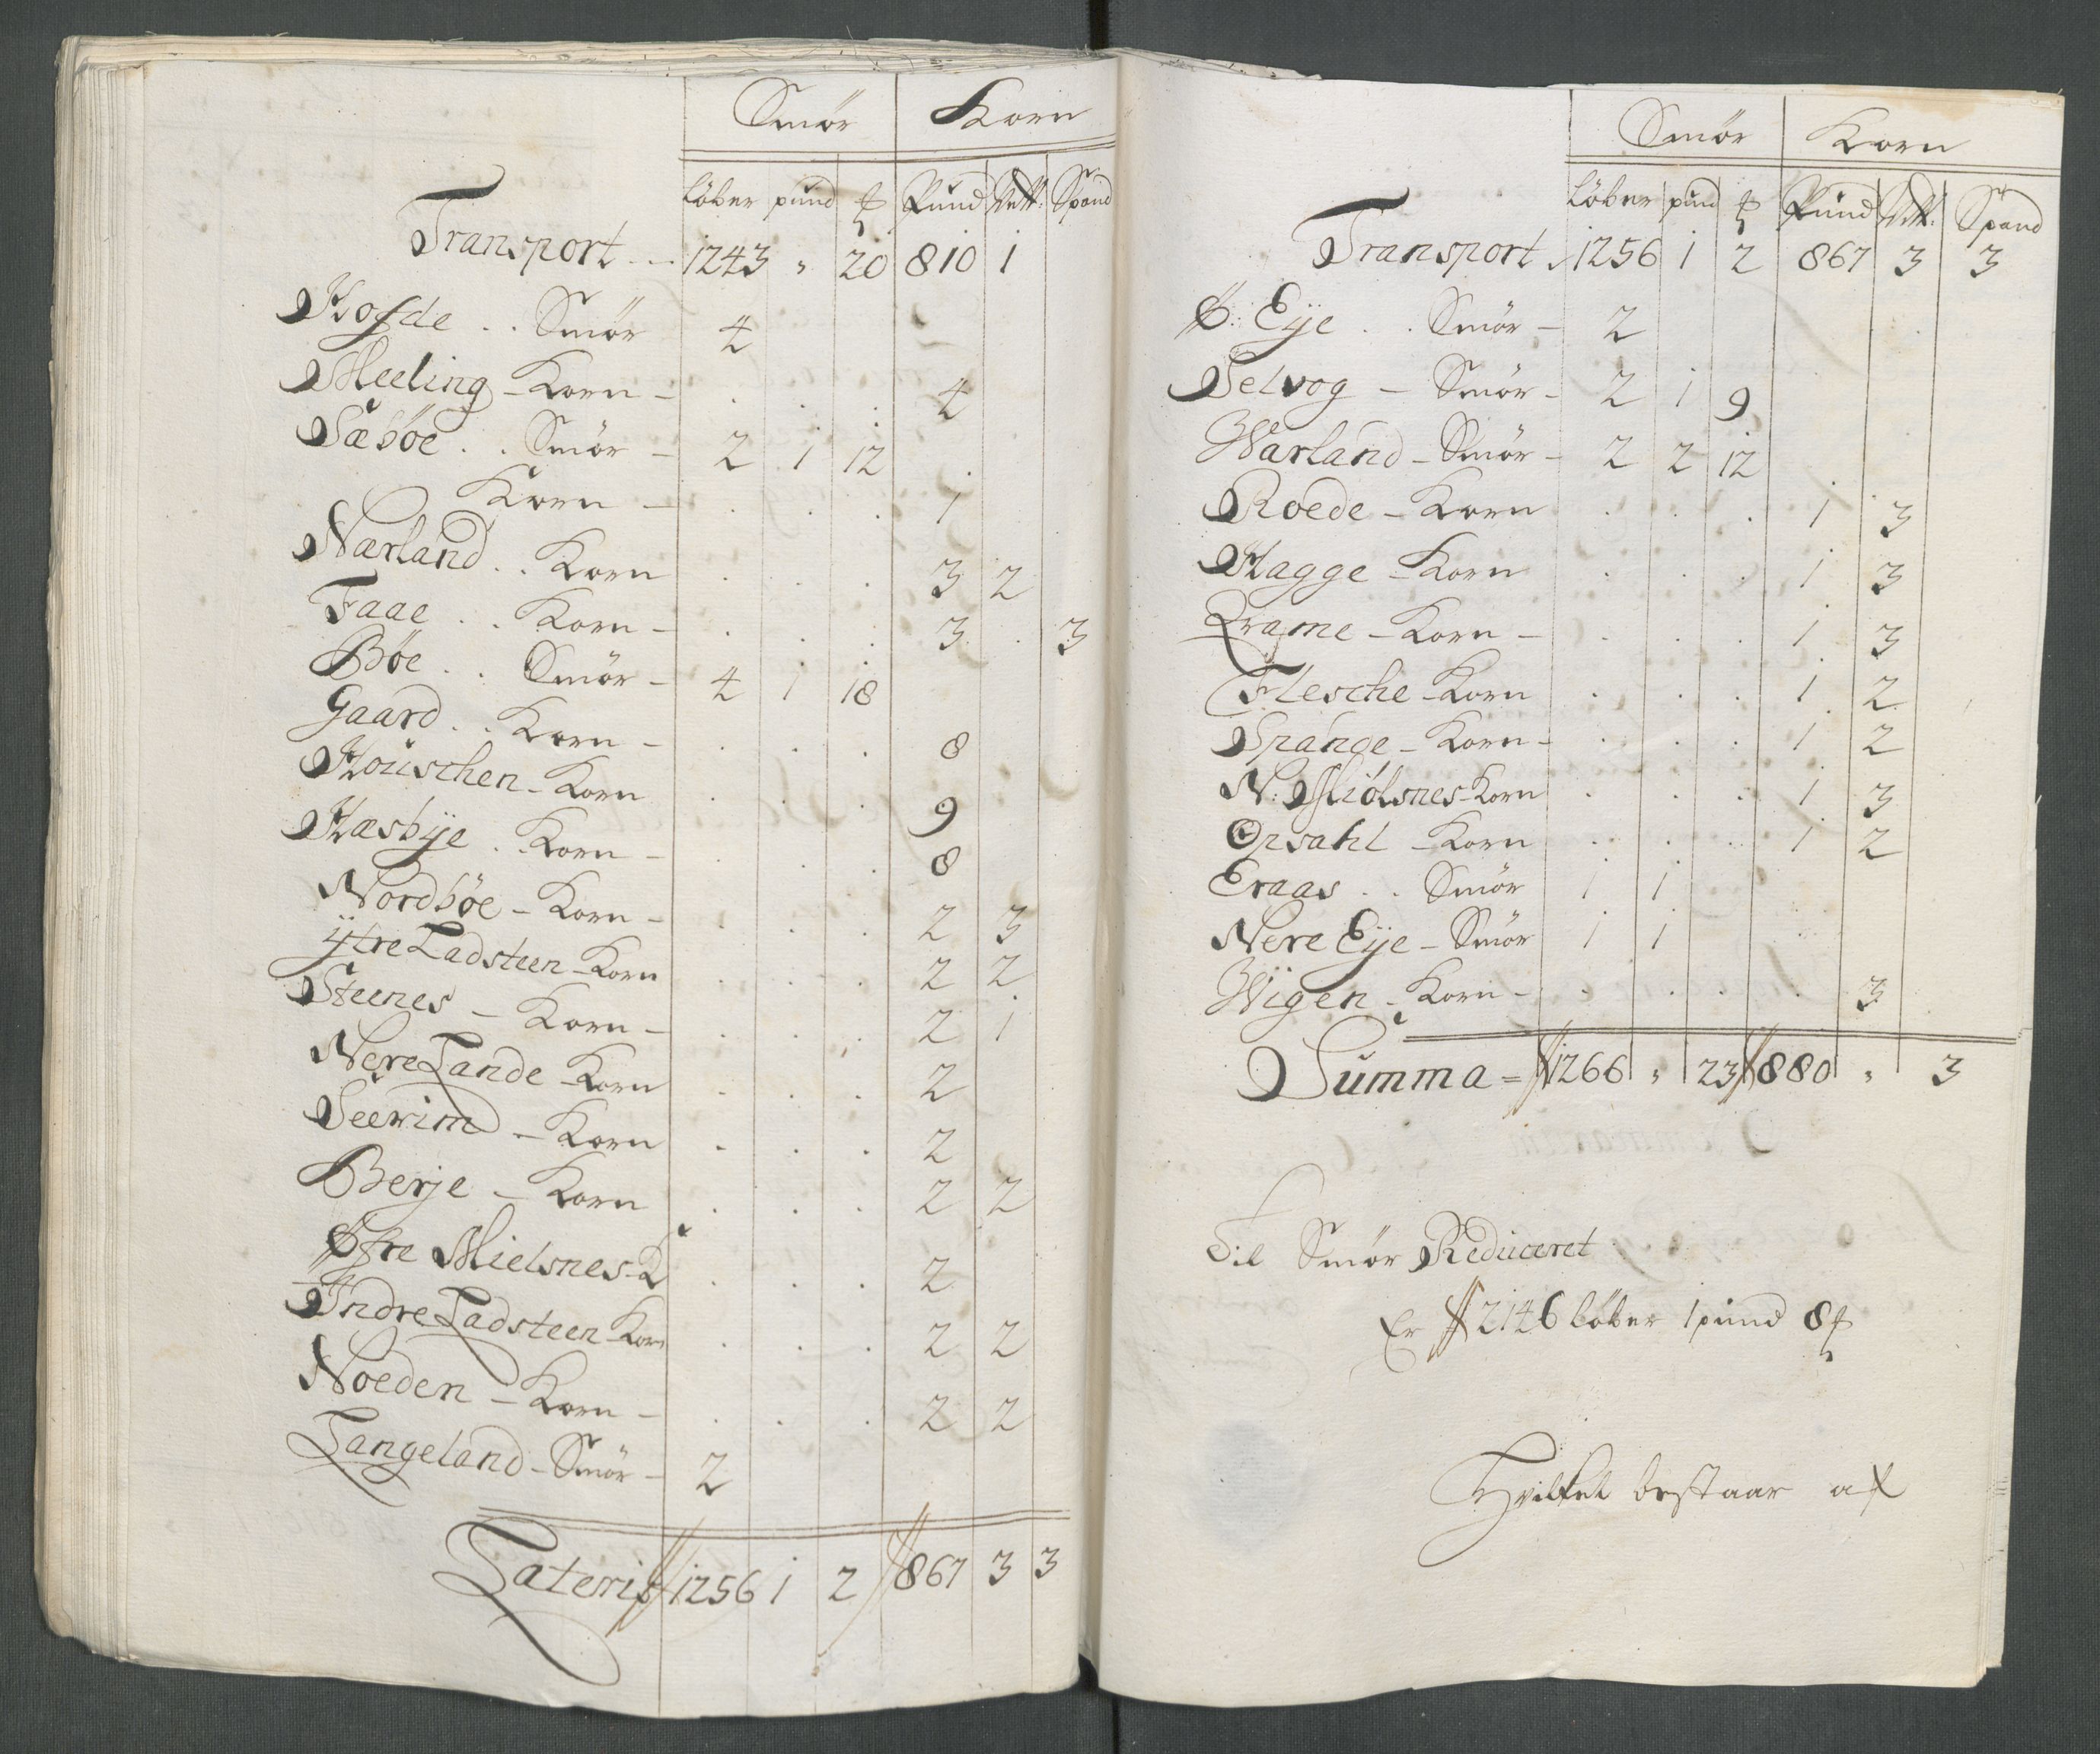 Smör Korn
Löber pund ℔ Pund Vett: Spand
Transport .. 1243 " 20 810 1
Hofde . . Smör 4
Meeling - Korn - . . . 4
Sæbøe . . Smör - 2 1 12 .
Korn - . . . 1
Nærland . . Korn . . . 3 2
Faae . . Korn - . . . 3 . 3
Bøe . . Smör - 4 1 18
Gaard . . Korn - . . . 8
Houschen - Korn . . . 9
Hæsbije . . Korn - . . . 8
Nordbøe - Korn - . . . 2 3
ijtre Ladsteen - Korn . . . 2 2
Steenes - Korn - . . . 2 1
Nere Lande - Korn . . . 2
Seerim - Korn . . . 2
Berje - Korn . . . 2 2
Øfre Mielsnes - K . . . 2
Indre Ladsteen - Korn . . . 2 2
Noeden - Korn - . . . 2 2
Langeland - Smör - 2
Lateris 1256 1 2 867 3 3
Smör Korn
Löber pund ℔ Pund Vett: Spand
Transport . 1256 1 2 867 3 3
Ø: Eije . . Smör - 2
Selvog - Smör - 2 1 9
Warland - Smör - 2 2 12
Roede - Korn . . . 1 3
Hagge - Korn . . . 1 3
Qvame - Korn - . . . 1 3
Flesche - Korn . . . 1 2
Spange - Korn - . . . 1 2
N: Miølsnes - Korn . . . 1 3
Opsahl - Korn . . . 1 2
Eraas . . Smör 1 1
Nere Eije - Smör 1 1
Wigen - Korn - . . . . 3
Summa = 1266 " 23 880 " 3
Til Smör Reduceret
Er 2146 Löber 1 pund 8 ℔
Hvilket bestaar af